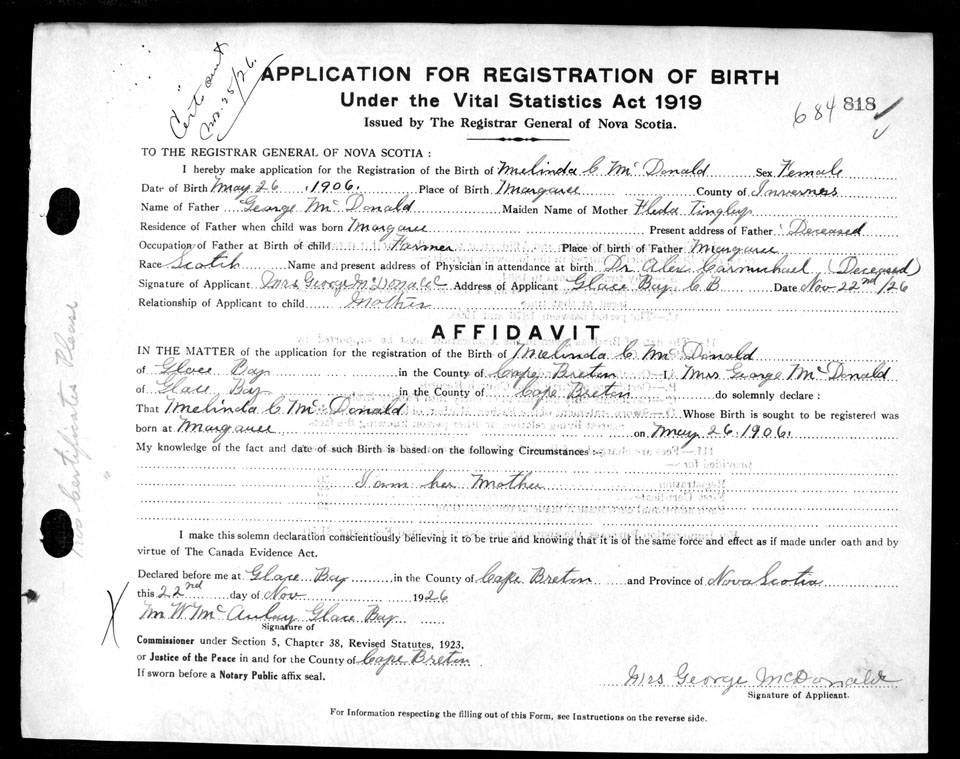 Cert out
Nov. 25/26.
APPLICATION FOR REGISTRATION OF BIRTH
Under the Vital Statistics Act 1919
Issued by The Registrar General of Nova Scotia.
684 818
TO THE REGISTRAR GENERAL OF NOVA SCOTIA :
I hereby make application for the Registration of the Birth of Melinda C McDonald Sex Female
Date of Birth May 26, 1906. Place of Birth Margaree County of Inverness
Name of Father George McDonald Maiden Name of Mother Fleda Tingley
Residence of Father when child was born Margaree Present address of Father Deceased
Occupation of Father at Birth of child Farmer Place of birth of Father Margaree
Race Scotch Name and present address of Physician in attendance at birth Dr Alex Carmichael (Deceased)
Signature of Applicant Mrs George McDonald Address of Applicant Glace Bay C B Date Nov 22nd/26
Relationship of Applicant to child Mother
AFFIDAVIT
IN THE MATTER of the application for the registration of the Birth of Melinda C McDonald
of Glace Bay in the County of Cape Breton I, Mrs George McDonald
of Glace Bay in the County of Cape Breton do solemnly declare :
That Melinda C McDonald Whose Birth is sought to be registered was
born at Margaree on May 26. 1906.
My knowledge of the fact and date of such Birth is based on the following Circumstances :-
I am her Mother
I make this solemn declaration conscientiously believing it to be true and knowing that it is of the same force and effect as if made under oath and by
virtue of The Canada Evidence Act.
Declared before me at Glace Bay in the County of Cape Breton and Province of Nova Scotia
this 22nd day of Nov 1926
M W McAulay Glace Bay
Signature of
Commissioner under Section 5, Chapter 38, Revised Statutes, 1923,
or Justice of the Peace in and for the County of Cape Breton
If sworn before a Notary Public affix seal.
Mrs George McDonald
Signature of Applicant.
For Information respecting the filling out of this Form, see Instructions on the reverse side.
Two Certificates Please